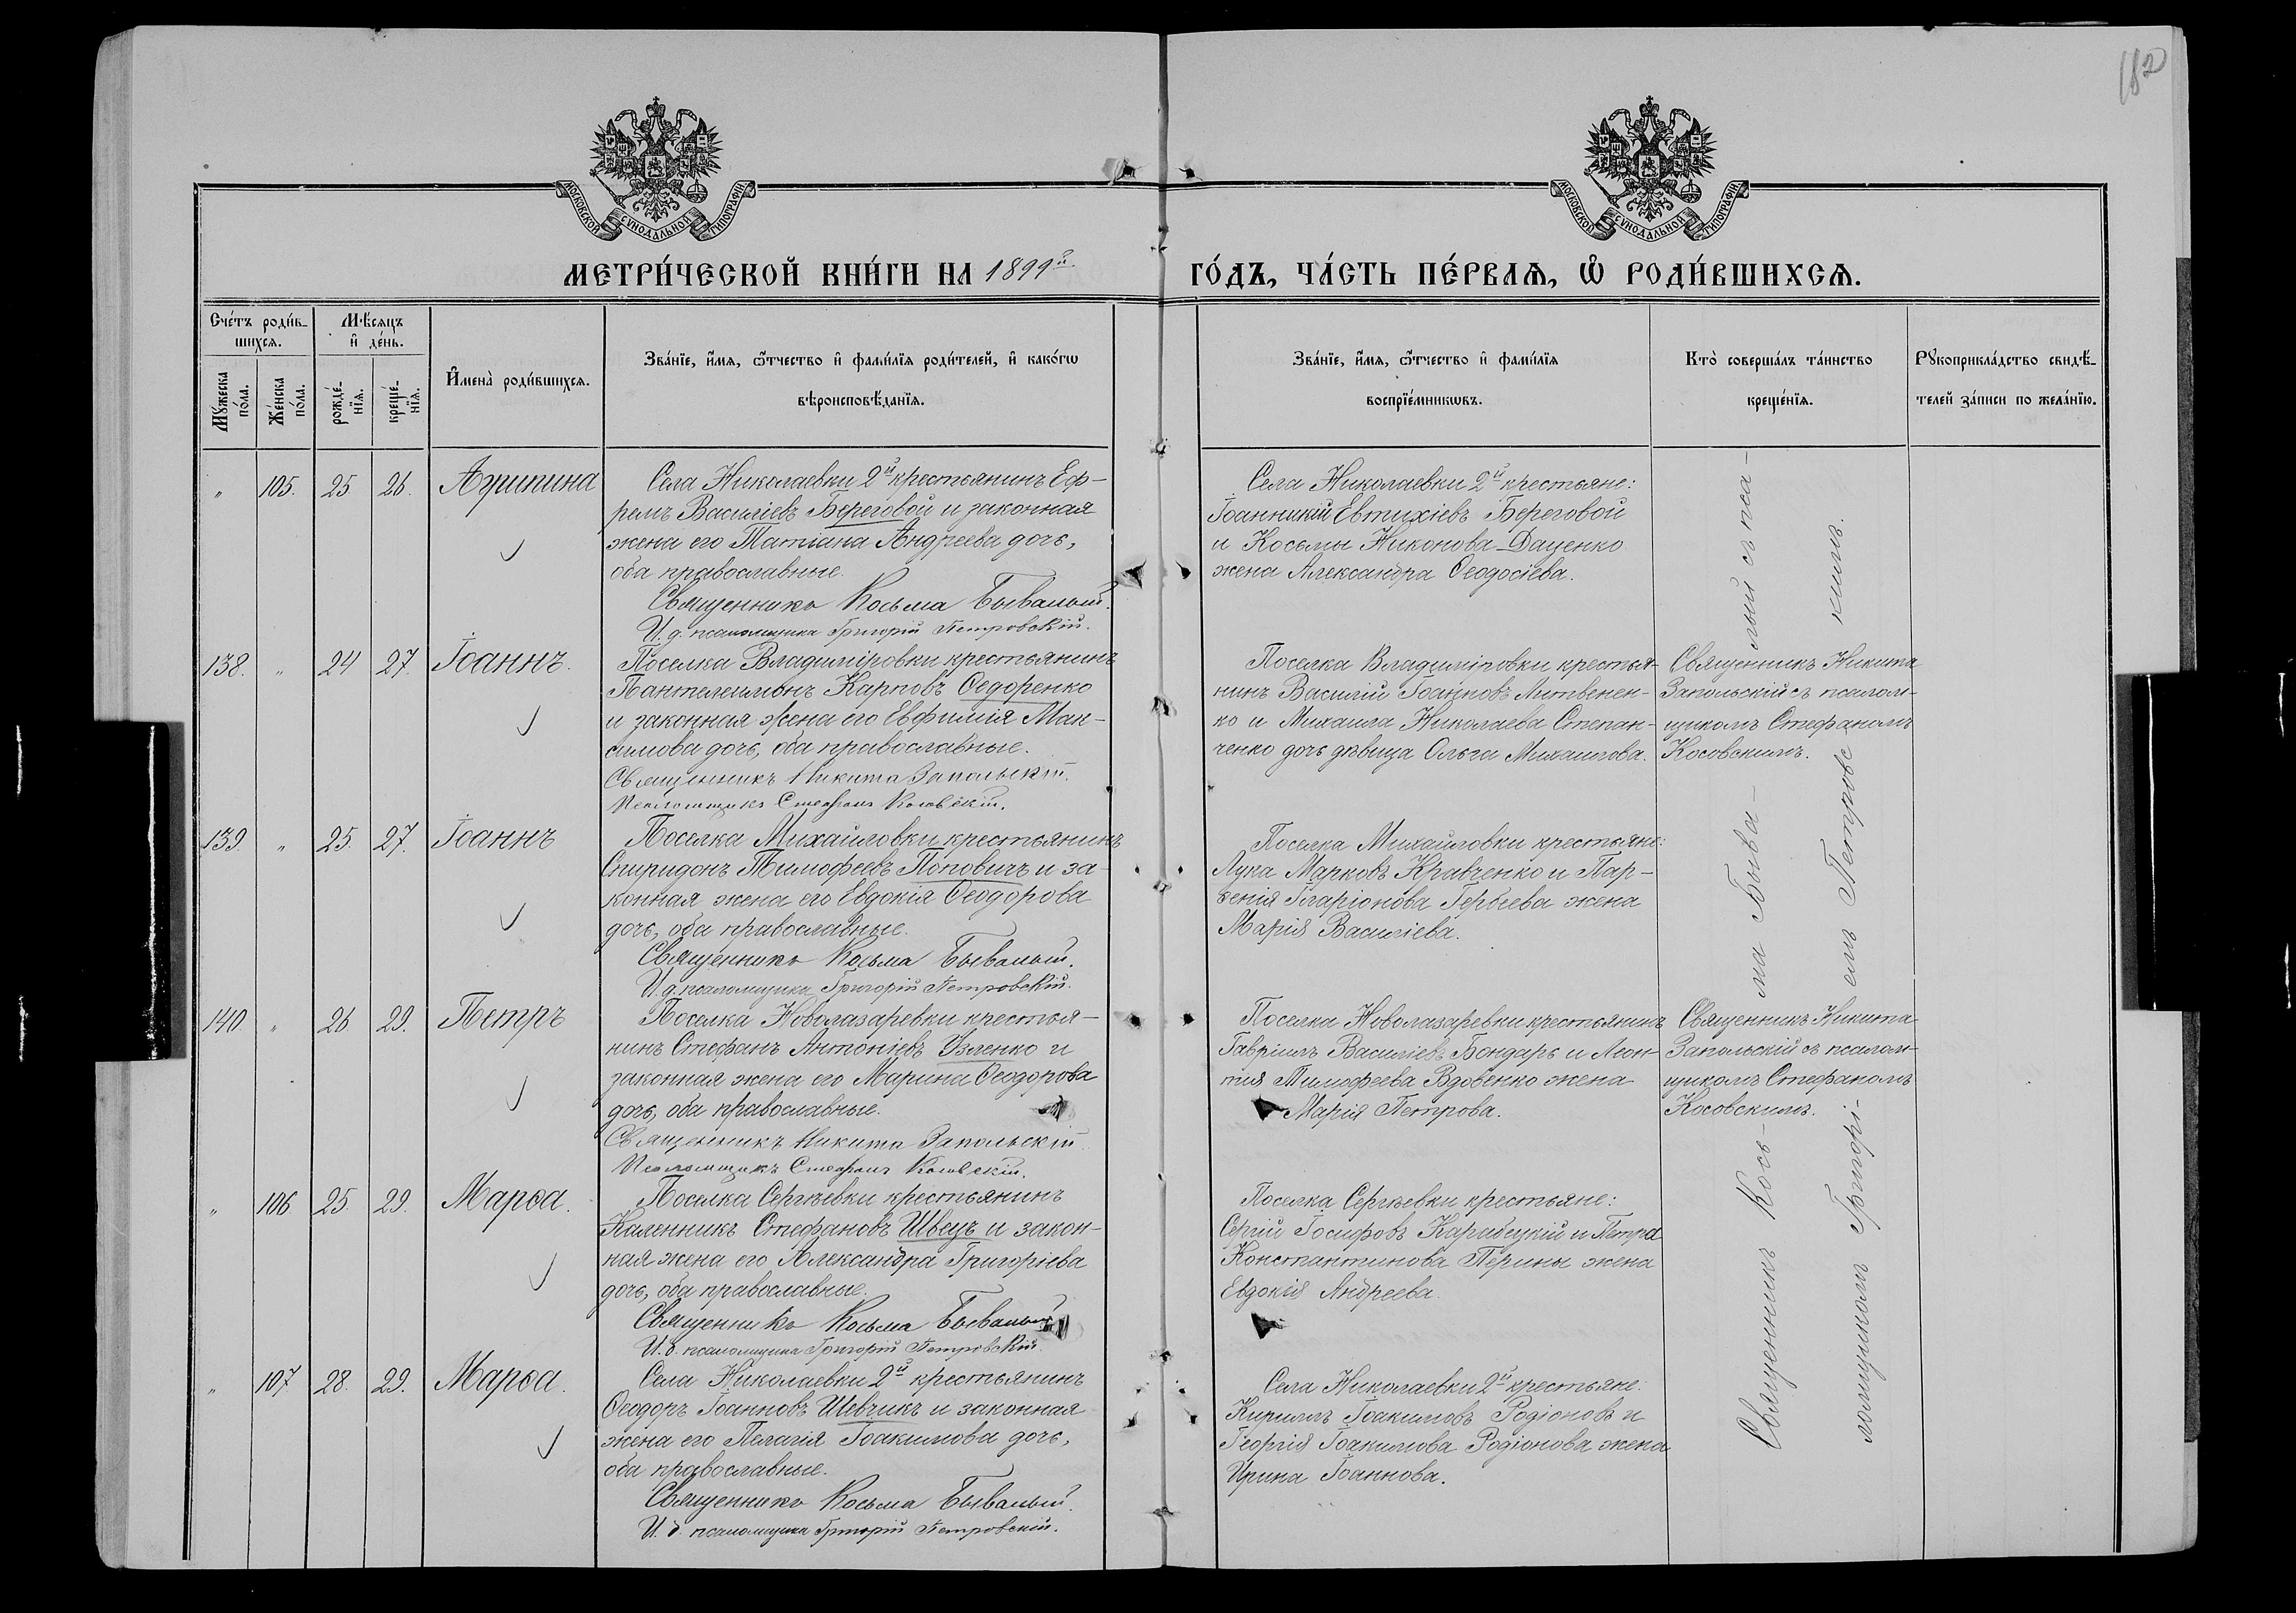 182
МОСКОВСКОЙ СУНОДАЛЬНОЙ ТИПОГРАФІИ
МОСКОВСКОЙ СУНОДАЛЬНОЙ ТИПОГРАФІИ
МЕТРИ́ЧЕСКОЙ КНИ́ГИ НА 1899й
ГО́ДЪ, ЧА́СТЬ ПЕ́РВАѦ, Ѡ РОДИ́ВШИХСѦ.
Сче́тъ роди́в-
шихсѧ.
Мѣ́сѧцъ
и҆ де́нь.
Мꙋ́жеска
по́ла.
Же́нска
по́ла.
рожде́-
нїѧ.
креще́-
нїѧ.
И҆мена̀ роди́вшихсѧ.
Зва́нїе, и҆́мѧ, ѻ҆́тчество и҆ фами́лїѧ роди́телей, и҆ како́гѡ
вѣроисповѣ́данїѧ.
Зва́нїе, и҆́мѧ, ѻ҆́тчество и҆ фами́лїѧ
воспрїе́мникѡвъ.
Кто̀ соверша́лъ та́инство
креще́нїѧ.
Рꙋкоприкла́дство свидѣ́-
телей за́писи по жела́нїю.
„ 105. 25 26. Агрипина
Села Николаевки 2й крестьянинъ Еф-
ремъ Василіевъ Береговой и законная
жена его Татіана Андреева дочь,
оба православные.
Священникъ Косьма Бывалый.
И. д. псаломщика Григорій Петровскій.
Села Николаевки 2й крестьяне:
Іоанникій Евтихіевъ Береговой
и Косьмы Никонова Даценко
жена Александра Ѳеодосіева.
138. „ 24 27. Іоаннъ.
Поселка Владиміровки крестьянинъ
Пантелеимонъ Карповъ Ѳедоренко
и законная жена его Евфимія Мак-
симова дочь, оба православные.
Священникъ Никита Запольскій.
Псаломщикъ Стефанъ Косовскій.
Поселка Владиміровки крестья-
нинъ Василій Іоанновъ Литвенен-
ко и Михаила Николаева Степан-
ченко дочь дѣвица Ольга Михаилова.
Священникъ Никита
Запольскій съ псалом-
щикомъ Стефаномъ
Косовскимъ.
139 „ 25. 27. Іоаннъ
Поселка Михайловки крестьянинъ
Спиридонъ Тимофеевъ Поповичъ и за-
конная жена его Евдокія Ѳеодорова
дочь, оба православные.
Священникъ Косьма Бывалый.
И. д. псаломщика Григорій Петровскій.
Поселка Михайловки крестьяне:
Лука Марковъ Кравченко и Пар-
ѳенія Иларіонова Гербеева жена
Марія Василіева.
140 „ 26 29. Петръ
Поселка Новолазаревки крестья-
нинъ Стефанъ Антоніевъ Узленко и
законная жена его Марина Ѳеодорова
дочь, оба православные.
Священникъ Никита Запольскій
Псаломщикъ Стефанъ Косовскій.
Поселка Новолазаревки крестьянинъ
Гавріилъ Василіевъ Бондарь и Леон-
тія Тимофеева Вдовенко жена
Марія Петрова.
Священникъ Никита
Запольскій съ псалом-
щикомъ Стефаномъ
Косовскимъ.
„ 106 25. 29. Марѳа.
Поселка Сергѣевки крестьянинъ
Каленникъ Стефановъ Швецъ и закон-
ная жена его Александра Григоріева
дочь, оба православные.
Священникъ Косьма Бывалый
И. д. псаломщика Григорій Петровскій.
Поселка Сергѣевки крестьяне:
Сергій Іосифовъ Карабецкій и Петра
Константинова Перины жена
Евдокія Андреева.
„ 107 28. 29. Марѳа.
Села Николаевки 2й крестьянинъ
Ѳеодоръ Іоанновъ Шевчикъ и законная
жена его Пелагія Іоакимова дочь,
оба православные.
Священникъ Косьма Бывалый.
И. д. псаломщика Григорій Петровскій.
Села Николаевки 2й крестьяне:
Кириллъ Іоакимовъ Родіоновъ и
Георгія Іоакимова Родіонова жена
Ирина Іоаннова.
Священникъ Кось- ма Быва- лый съ пса-
ломщикомъ Григорі- емъ Петровс кимъ.